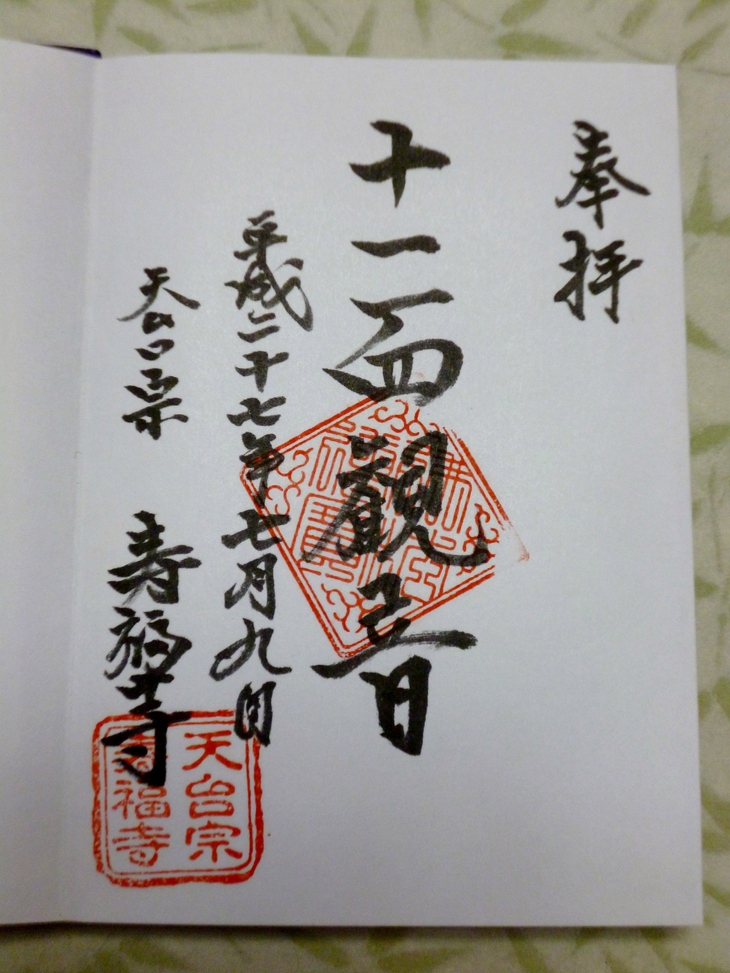 奉拝
十一面観音
平成二十七年七月九日
天台宗 寿福寺
天台宗
寿福寺